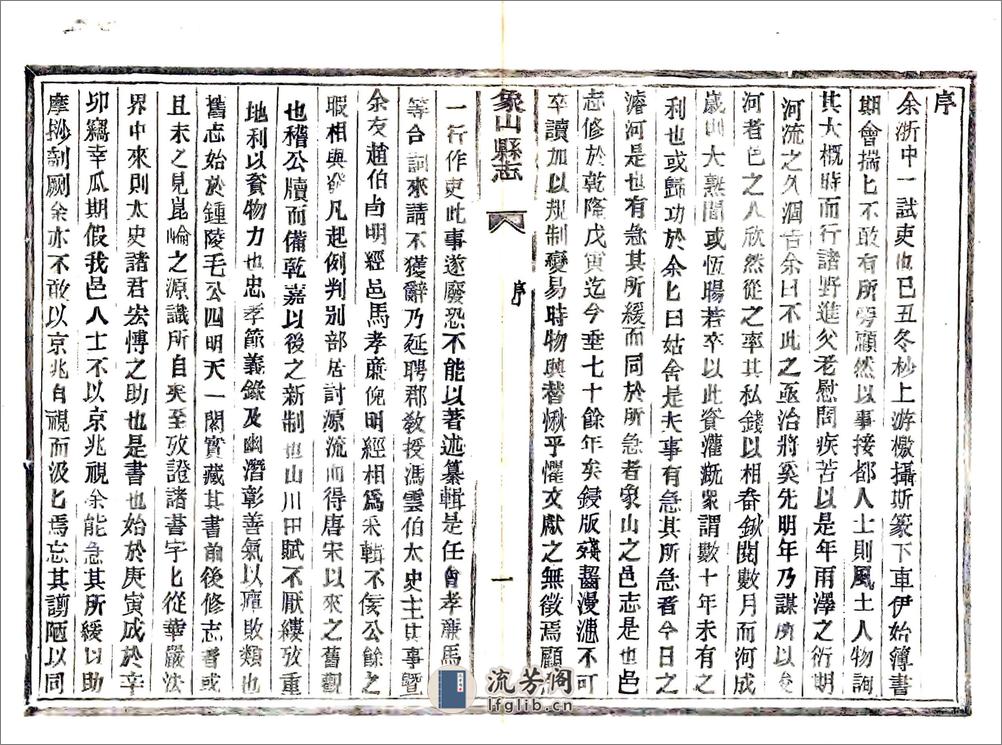 序
余浙中一試吏也已丑冬杪上游檄攝斯篆下車伊始簿書
期會揣匕不敢有所旁顧然以事接都人士則風土人物詢
其大概時而行諸野進父老慰問疾苦以是年雨澤之衍期
河流之久涸告余曰不此之亟治將奚先明年乃謀所以
河者邑之人欣然從之率其私錢以相畚鍬閱數月而河成
歲則大熟間或恆暘若卒以此資灌溉眾謂數十年未有之
利也或歸功於余匕曰姑舍是夫事有急其所急者今日之
濬河是也有急其所緩而同於所急者象山之邑志是也邑
志修於乾隆戊寅迄今垂七十餘年矣鋟版殘齾漫漶不可
卒讀加以規制變易時物興替愀乎懼文獻之無徵焉顧
象山縣志
序
一
一行作吏此事遂廢恐不能以著述纂輯是任會孝廉馬
等合詞來請不獲辭乃延聘郡敎授馮雲伯太史主其事暨
余友趙伯卣明經邑馬孝廉倪明經相爲釆輯不佞公餘之
暇相與發凡起例判别部居討源流而得唐宋以來之舊觀
也稽公牘而備乾嘉以後之新制也山川田賦不厭縷攷重
地利以資物力也忠孝節義錄及幽潛彰善氣以癉敗類也
舊志始於鍾陵毛公四明天一閣實藏其書前後修志者或
且未之見崑崘之源識所自矣至攷證諸書字匕從華嚴法
界中來則太史諸君宏慱之助也是書也始於庚寅成於辛
卯竊幸瓜期假我邑人士不以京兆視余能急其所緩以助
摩抄剞劂余亦不敢以京兆自視而汲匕焉忘其謭陋以同
流芳阁
lfglib.cn